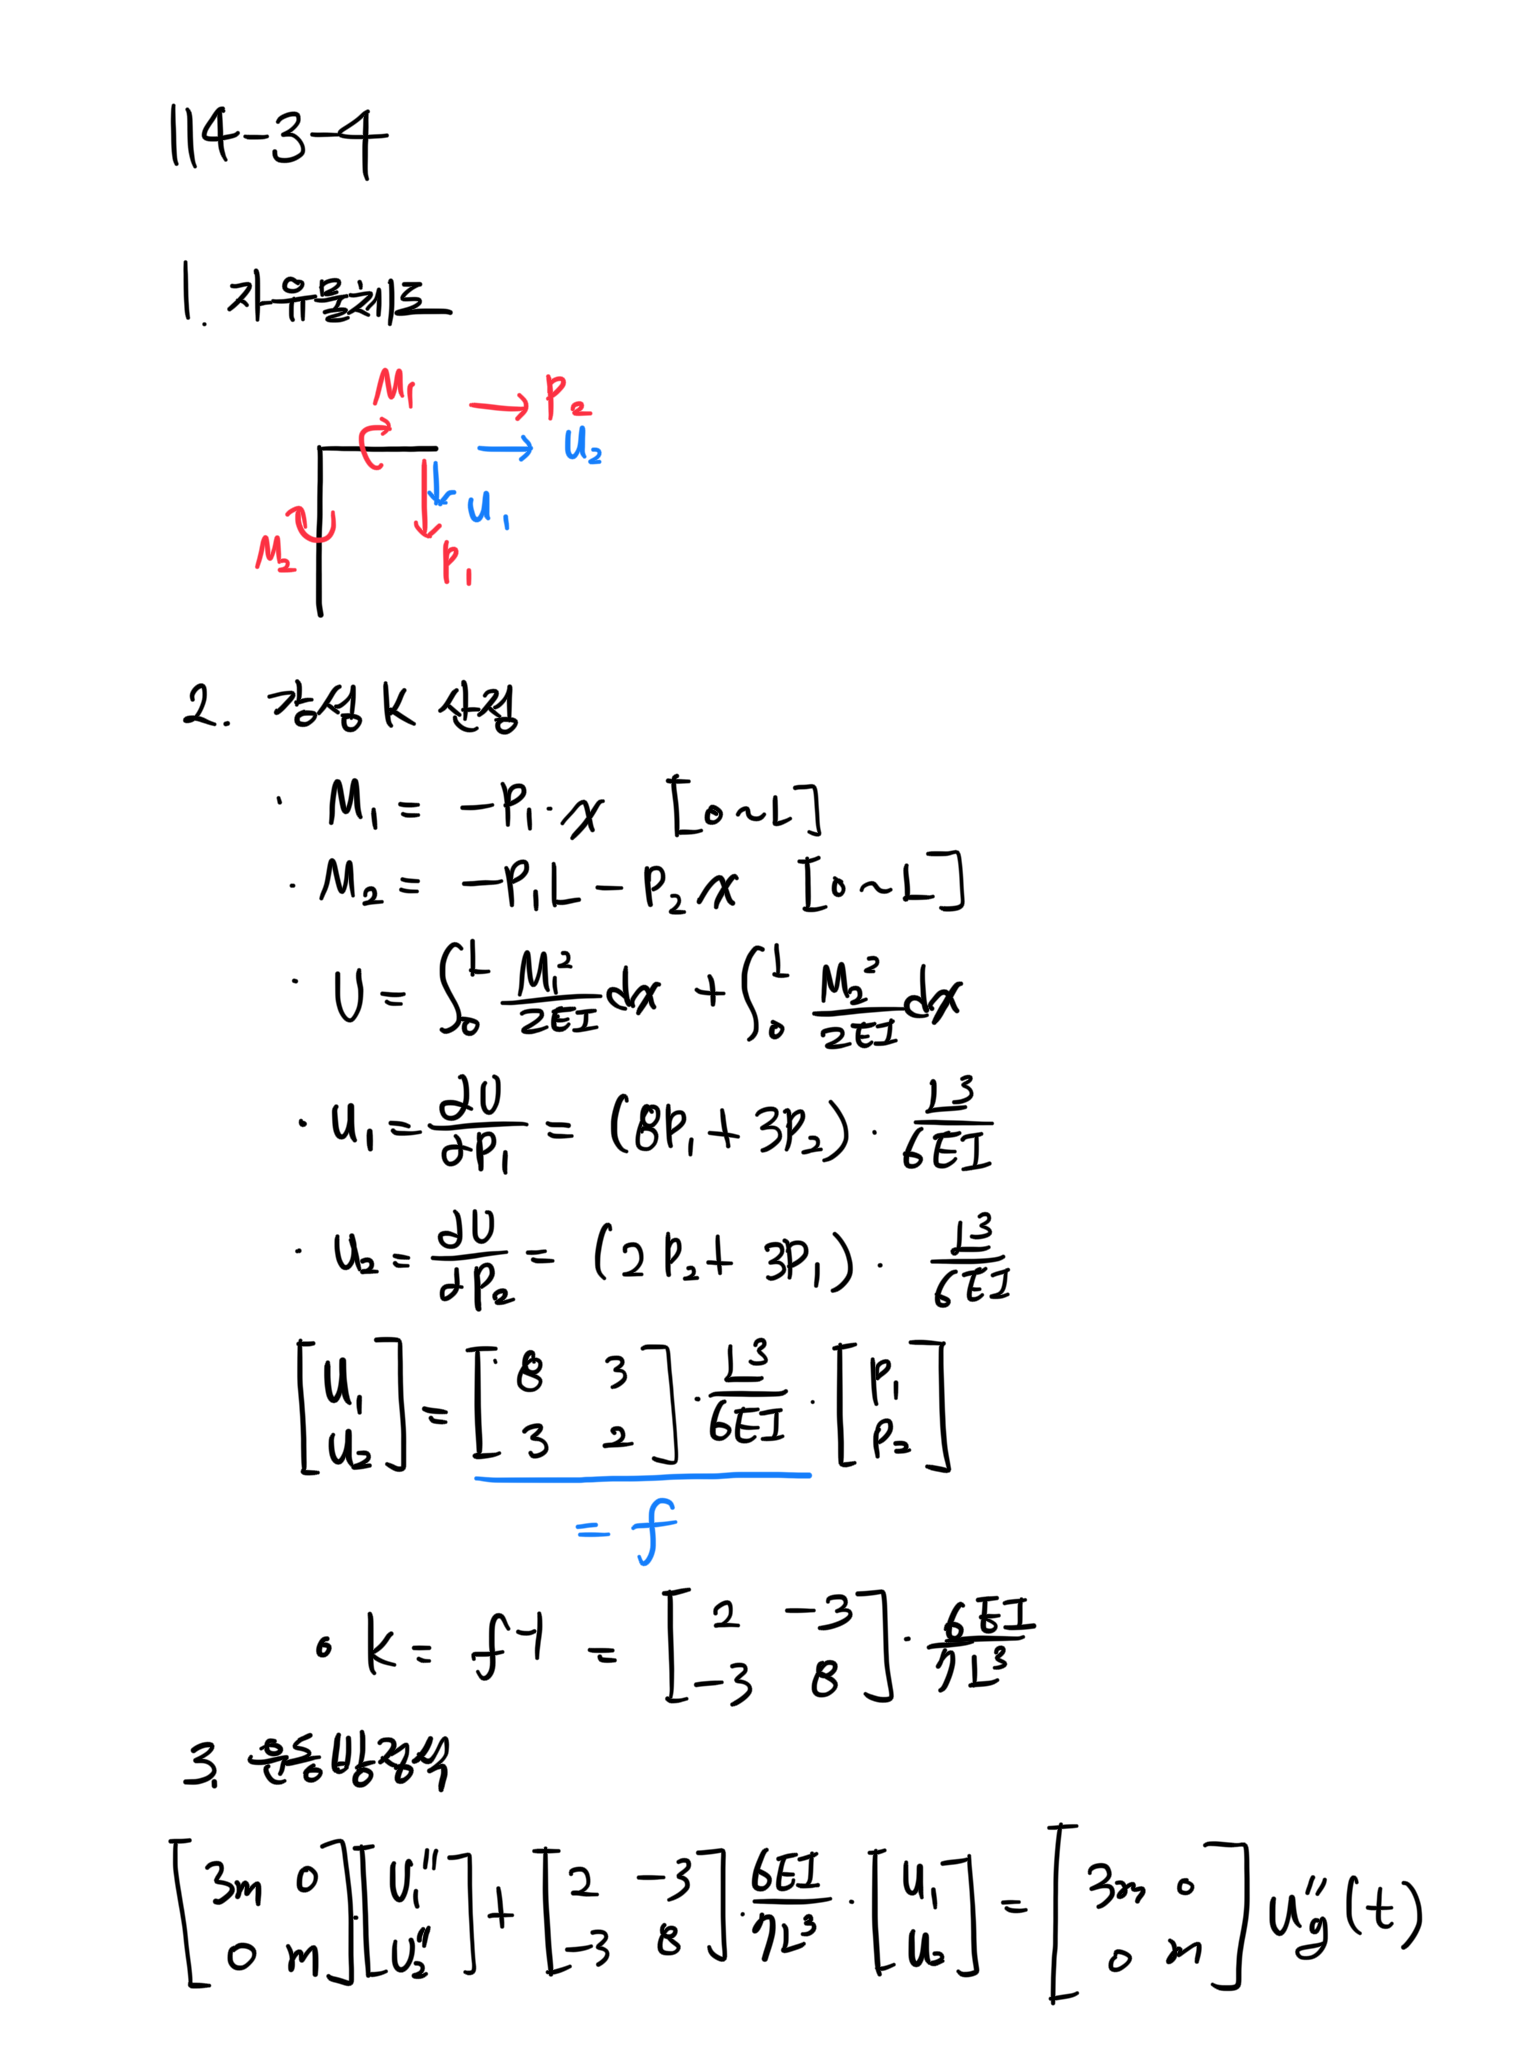 114-3-4
1. 자유물체도
M₁ → P₂
→ u₂
u₁
M₂ P₁
2. 강성 K 산정
· M₁ = -P₁·x [0~L]
· M₂ = -P₁L - P₂x [0~L]
· U = ∫₀ᴸ M₁²/2EI dx + ∫₀ᴸ M₂²/2EI dx
· u₁ = ∂U/∂P₁ = (8P₁ + 3P₂) · L³/6EI
· u₂ = ∂U/∂P₂ = (2P₂ + 3P₁) · L³/6EI
[u₁; u₂] = [8 3; 3 2] · L³/6EI · [P₁; P₂]
= f
∘ K = f⁻¹ = [2 -3; -3 8] · 6EI/7L³
3. 운동방정식
[3m 0; 0 m]·[U₁''; U₂''] + [2 -3; -3 8] · 6EI/7L³ · [u₁; u₂] = [3m 0; 0 m] u''g(t)